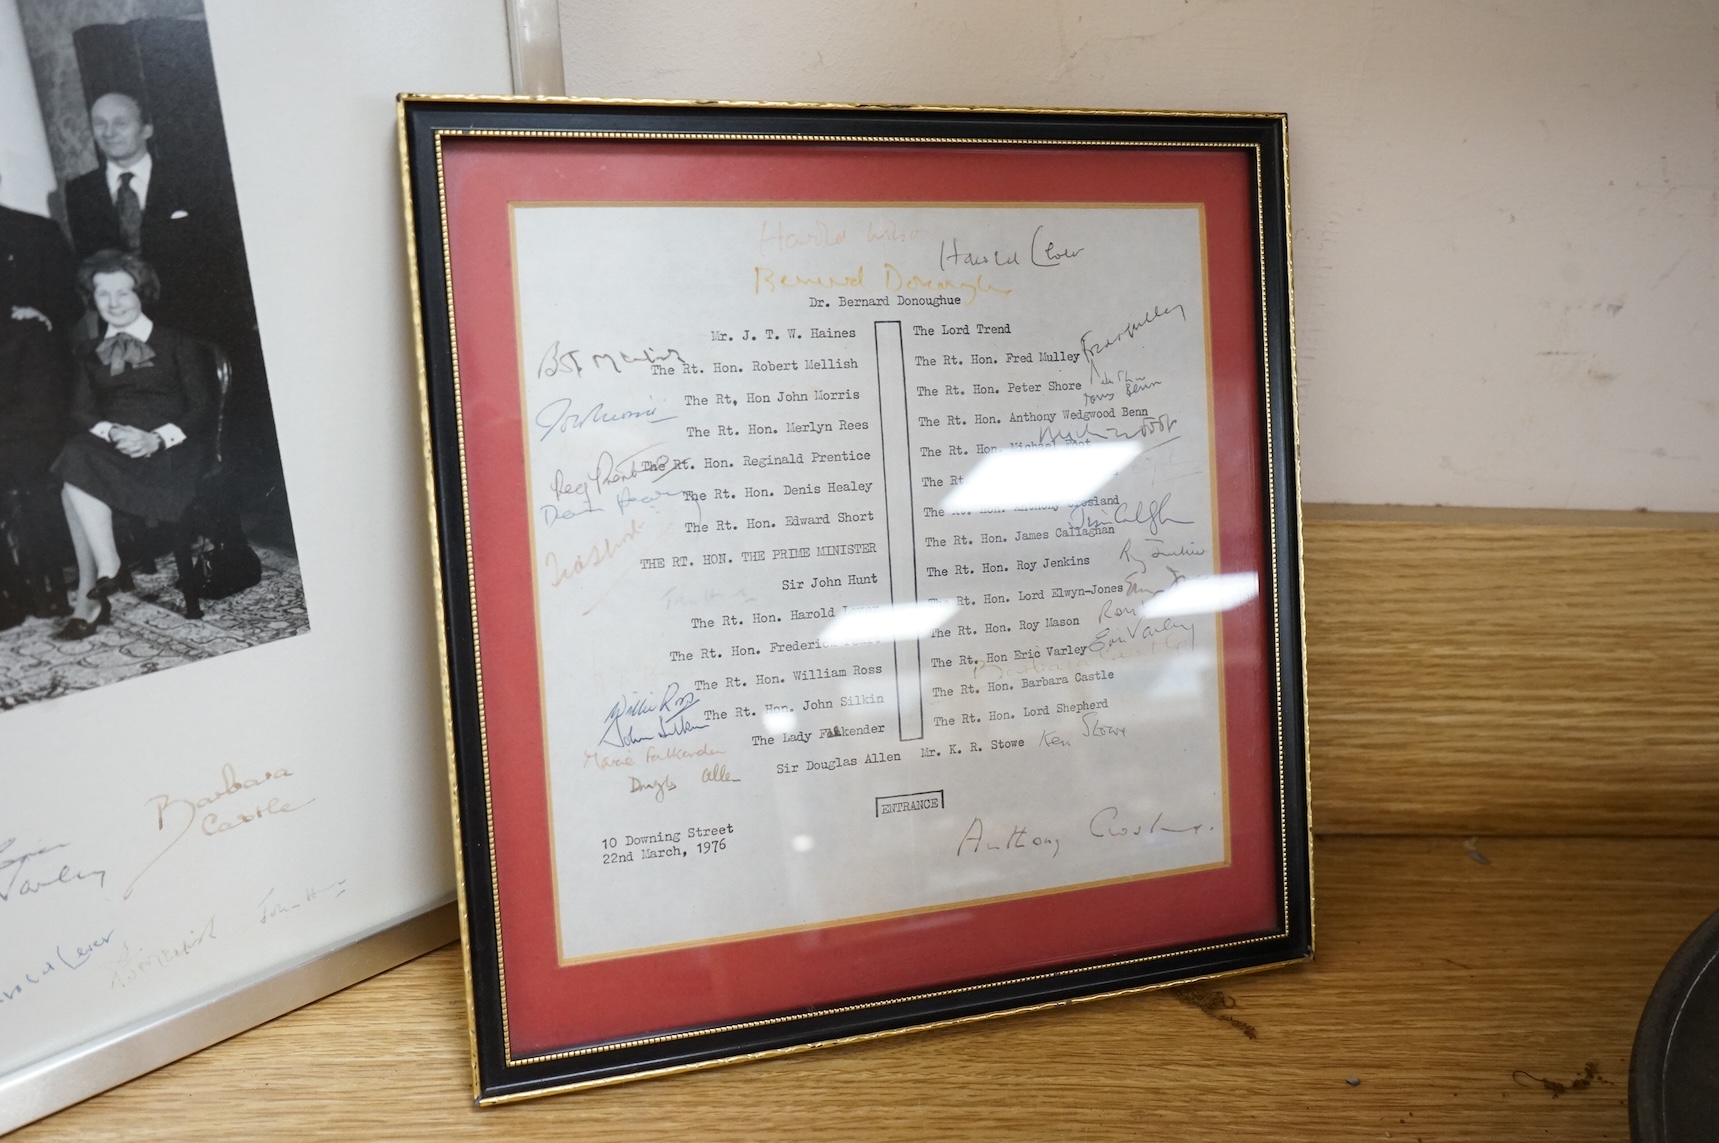 Harold Wilson
Harold Lever
Bernard Donoughue
Dr. Bernard Donoughue
Mr. J. T. W. Haines
The Rt. Hon. Robert Mellish
Bob Mellish
The Rt, Hon John Morris
John Morris
The Rt. Hon. Merlyn Rees
The Rt. Hon. Reginald Prentice
Reg Prentice
The Rt. Hon. Denis Healey
Denis Healey
The Rt. Hon. Edward Short
Ted Short
THE RT. HON. THE PRIME MINISTER
Sir John Hunt
John Hunt
The Rt. Hon. Harold Lever
The Rt. Hon. Frederick
The Rt. Hon. William Ross
Willie Ross
The Rt. Hon. John Silkin
John Silkin
The Lady Falkender
Marcia Falkender
Sir Douglas Allen
Douglas Allen
The Lord Trend
The Rt. Hon. Fred Mulley
Fred Mulley
The Rt. Hon. Peter Shore
Peter Shore
Tony Benn
The Rt. Hon. Anthony Wedgwood Benn
Michael Foot
The Rt. Hon. Michael Foot
The Rt
The Rt. Hon. Anthony Crosland
Jim Callaghan
The Rt. Hon. James Callaghan
The Rt. Hon. Roy Jenkins
Roy Jenkins
The Rt. Hon. Lord Elwyn-Jones
The Rt. Hon. Roy Mason
Roy
The Rt. Hon Eric Varley
Eric Varley
Barbara Castle
The Rt. Hon. Barbara Castle
The Rt. Hon. Lord Shepherd
Mr. K. R. Stowe
Ken Stowe
ENTRANCE
10 Downing Street
22nd March, 1976
Anthony Crosland.
Barbara
Castle
Varley
Harold Lever
Bob Mellish
John Hunt